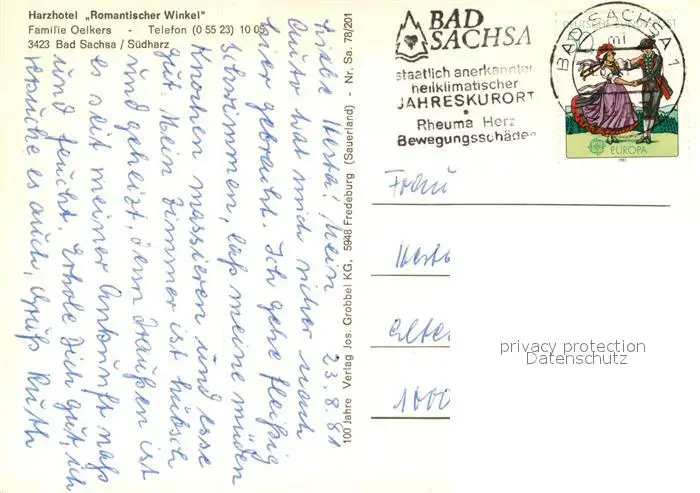 Harzhotel „Romantischer Winkel"
Familie Oelkers - Telefon (0 55 23) 10 05
3423 Bad Sachsa / Südharz
23.8.81
Liebe Herta! Mein
Auto hat mich sicher nach
hier gebracht. Ich gehe fleißig
schwimmen, laß meine müden
Knochen massieren und esse
gut. Mein Zimmer ist hübsch
und geheizt, denn draußen ist
es seit meiner Ankunft naß
und feucht. Erhole Dich gut, ich
versuche es auch, Gruß Ruth
100 Jahre Verlag Jos. Grobbel KG, 5948 Fredeburg (Sauerland) - Nr. Sa. 78/201
BAD
SACHSA
staatlich anerkannter
heilklimatischer
JAHRESKURORT
Rheuma Herz
Bewegungsschäden
BAD SACHSA 1
mi
EUROPA
1981
Frau
Herta
1000
privacy protection
Datenschutz